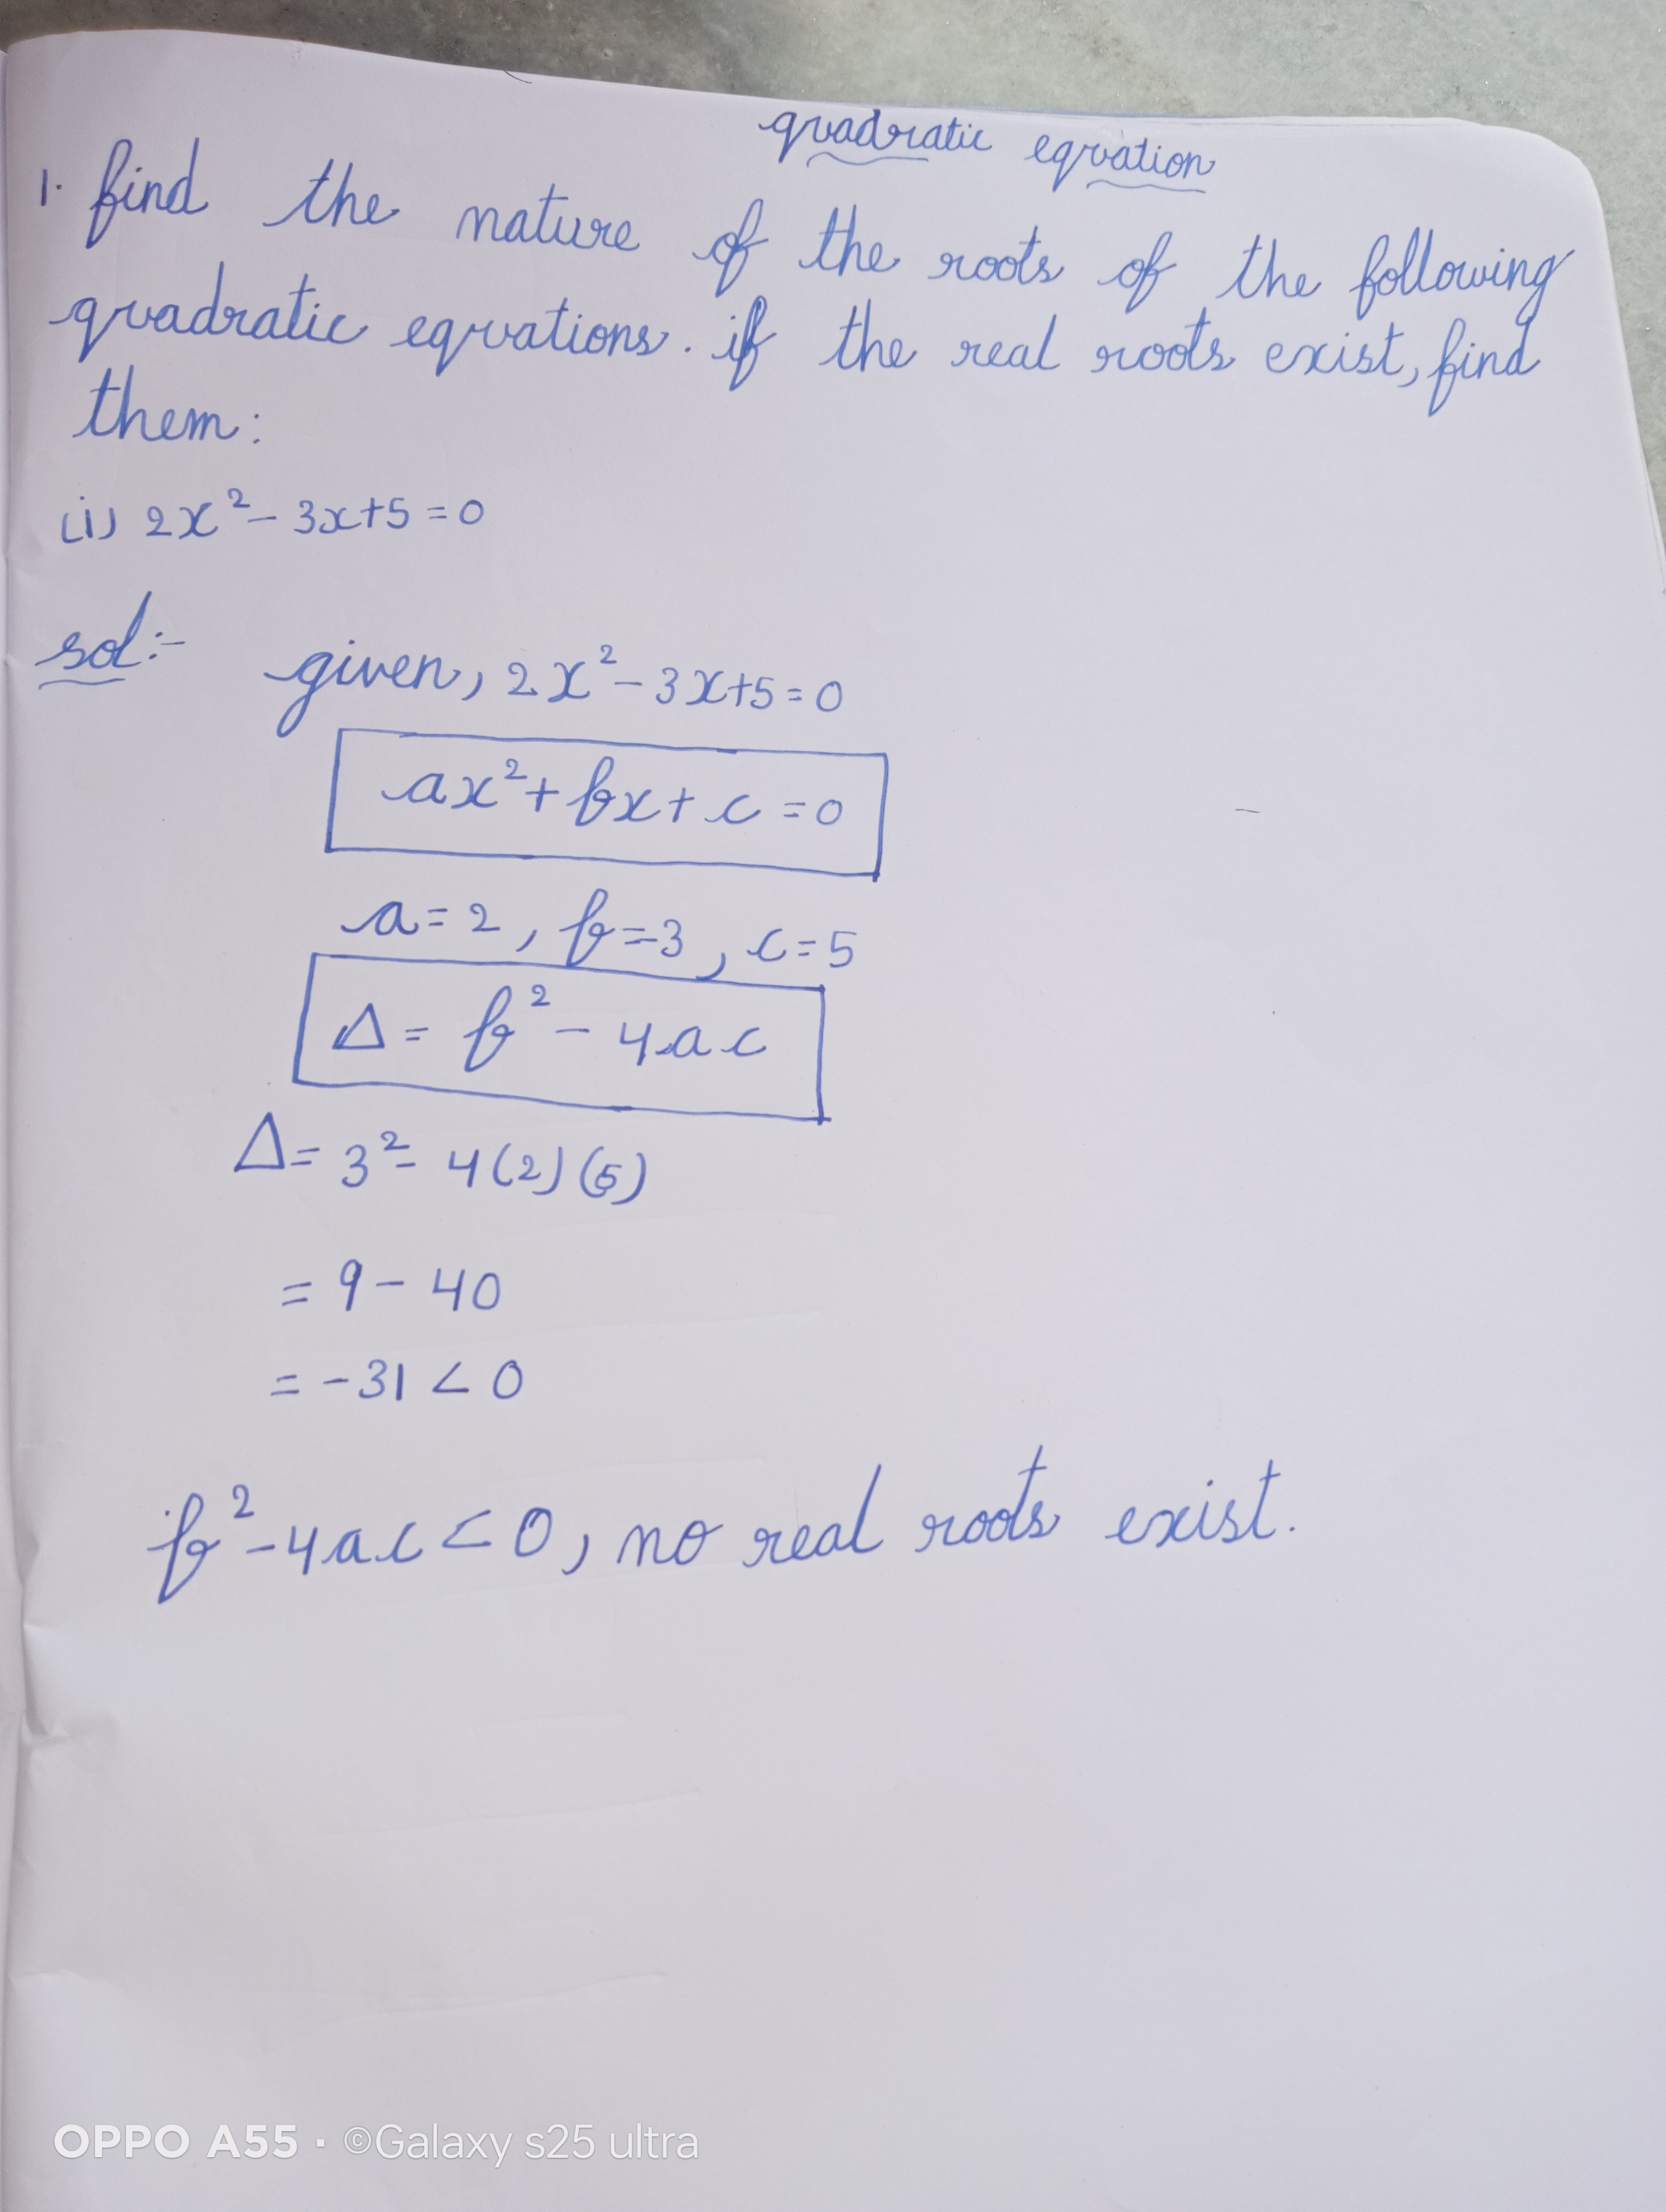 quadratic equation
1. find the nature of the roots of the following
quadratic equations. if the real roots exist, find
them:
(i) 2x² - 3x+5 = 0
sol:- given, 2x² - 3x+5 = 0
ax² + bx + c = 0
a = 2, b =-3, c = 5
Δ = b² - 4ac
Δ = 3² - 4(2)(5)
= 9 - 40
= -31 < 0
b² - 4ac < 0, no real roots exist.
OPPO A55 · ©Galaxy s25 ultra